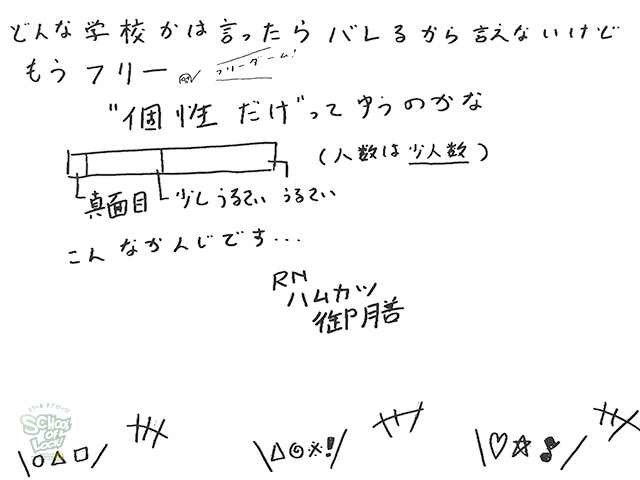 どんな学校かは言ったらバレるから言えないけど
もうフリー フリーダーム!
"個性だけ"ってゆうのかな
(人数は少人数)
真面目 少しうるてい うるてい
こんなかんじです...
RN
ハムカツ
御膳
スクールオブロック!
SCHOOL
OF
LOCK!
\○△□/ \△◎※!/ \♡☆♪/